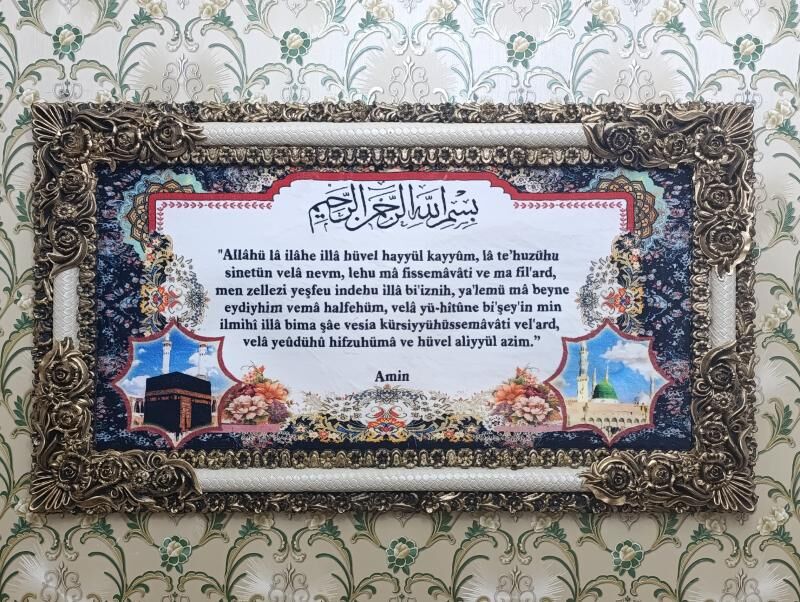 بسم الله الرحمن الرحيم
"Allâhü lâ ilâhe illâ hüvel hayyül kayyûm, lâ te'huzühu
sinetün velâ nevm, lehu mâ fissemâvâti ve ma fil'ard,
men zellezi yeşfeu indehu illâ bi'iznih, ya'lemü mâ beyne
eydiyhim vemâ halfehüm, velâ yü-hîtûne bi'şey'in min
ilmihî illâ bima şâe vesia kürsiyyühüssemâvâti vel'ard,
velâ yeûdühû hifzuhümâ ve hüvel aliyyül azim.”
Amin